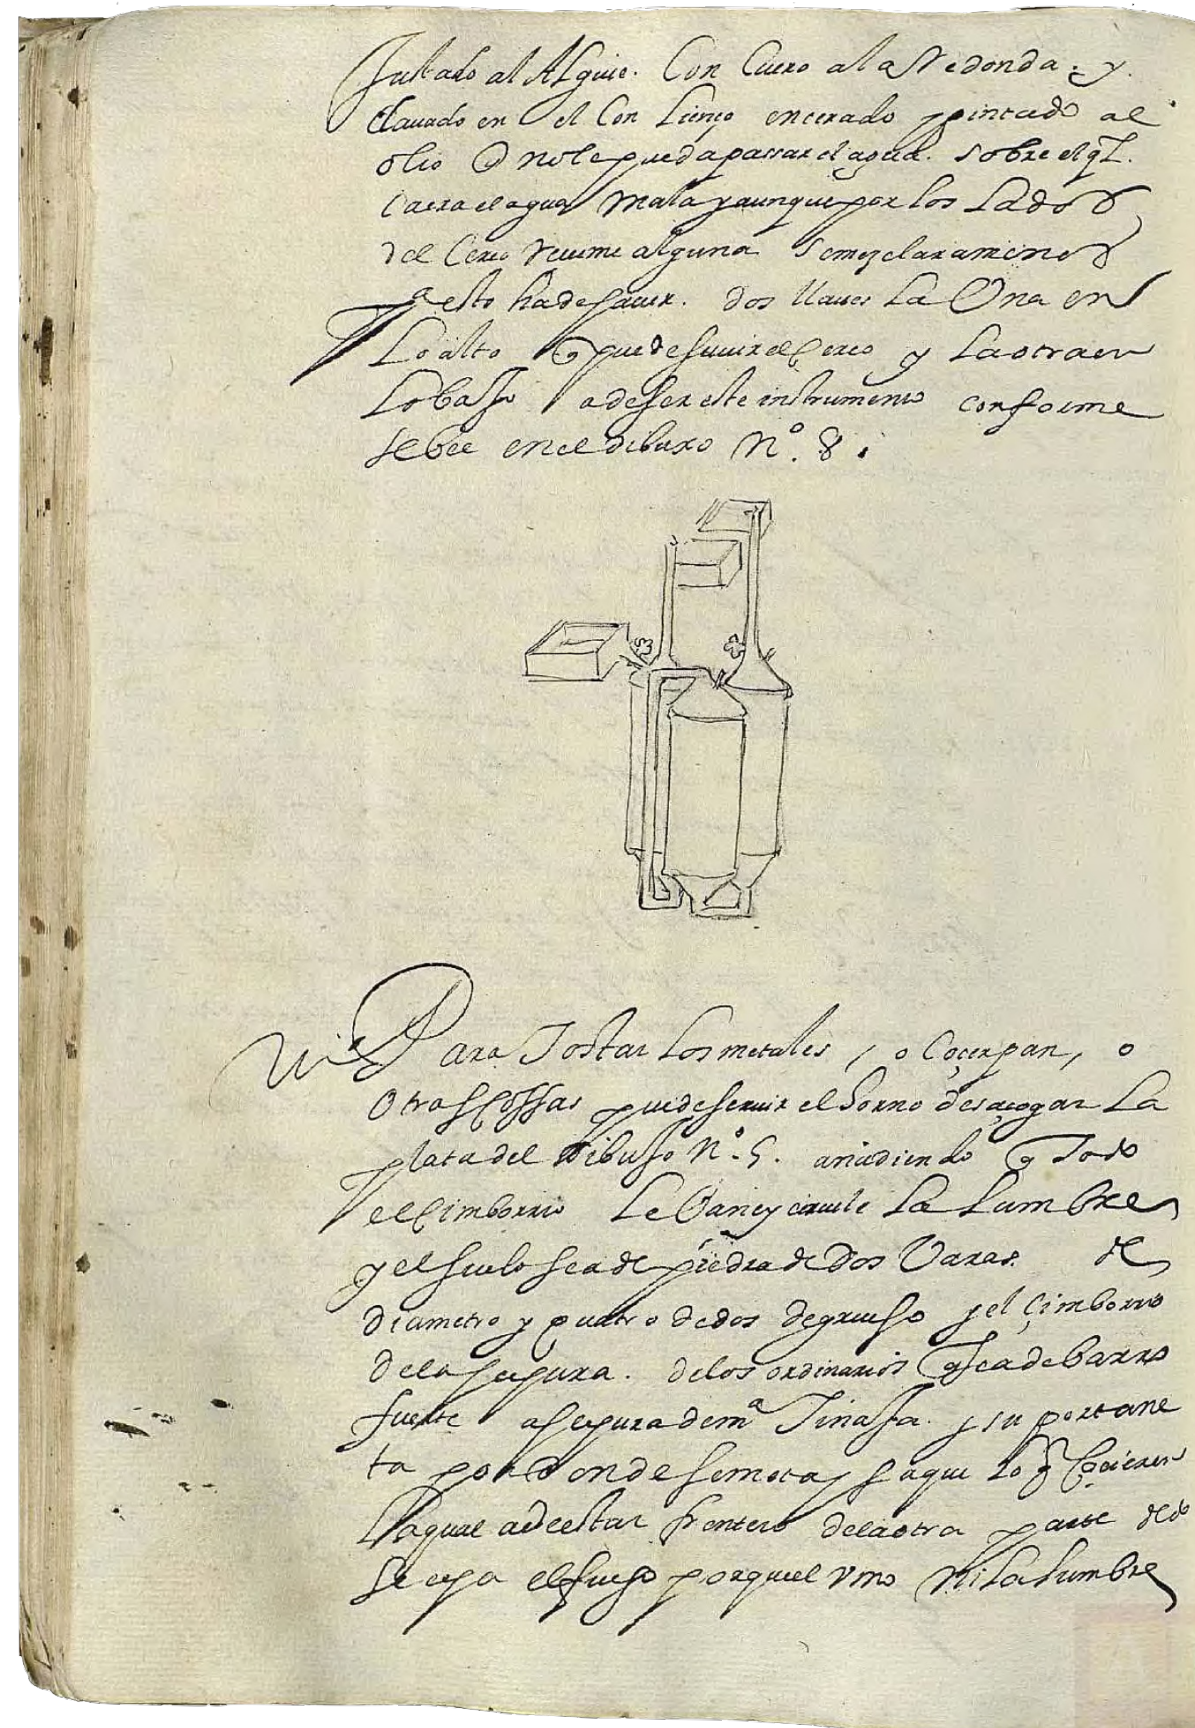 Juntado al Algive. Con Cuero a la Redonda. y.
Clavado en el Con Lienço encerado y pintado al
olio q̃ no le pueda passar el agua. sobre el ql.
Caera el agua mala y aunque por los Lados
del Cerco reçume alguna se mezclara menos
a esto ha de haver. dos llaves La Una en
Lo alto q puede suvir el Cerco y La otra en
Lo baxo a de ser este instrumento conforme
se bee en el dibuxo Nº. 8.
Para Tostar Los metales, o Coçer pan, o
Otras Cossas puede servir el horno desaçogar La
plata del dibuxo Nº. 5. añadiendo q Todo
el Cimborrio Le Vane y circule La Lumbre
y el suelo sea de piedra de Dos Varas. de
diametro y quatro dedos de grueso y el çimborrio
de la hechura. de los ordinarios q sea de barro
fuerte a hechura de mª Tinaxa. y su portane
ta por Donde se meta y saque Lo q Coçieren
La qual a de estar frontero de la otra parte de do
se ceva el fuego porque el umo ni La Lumbre